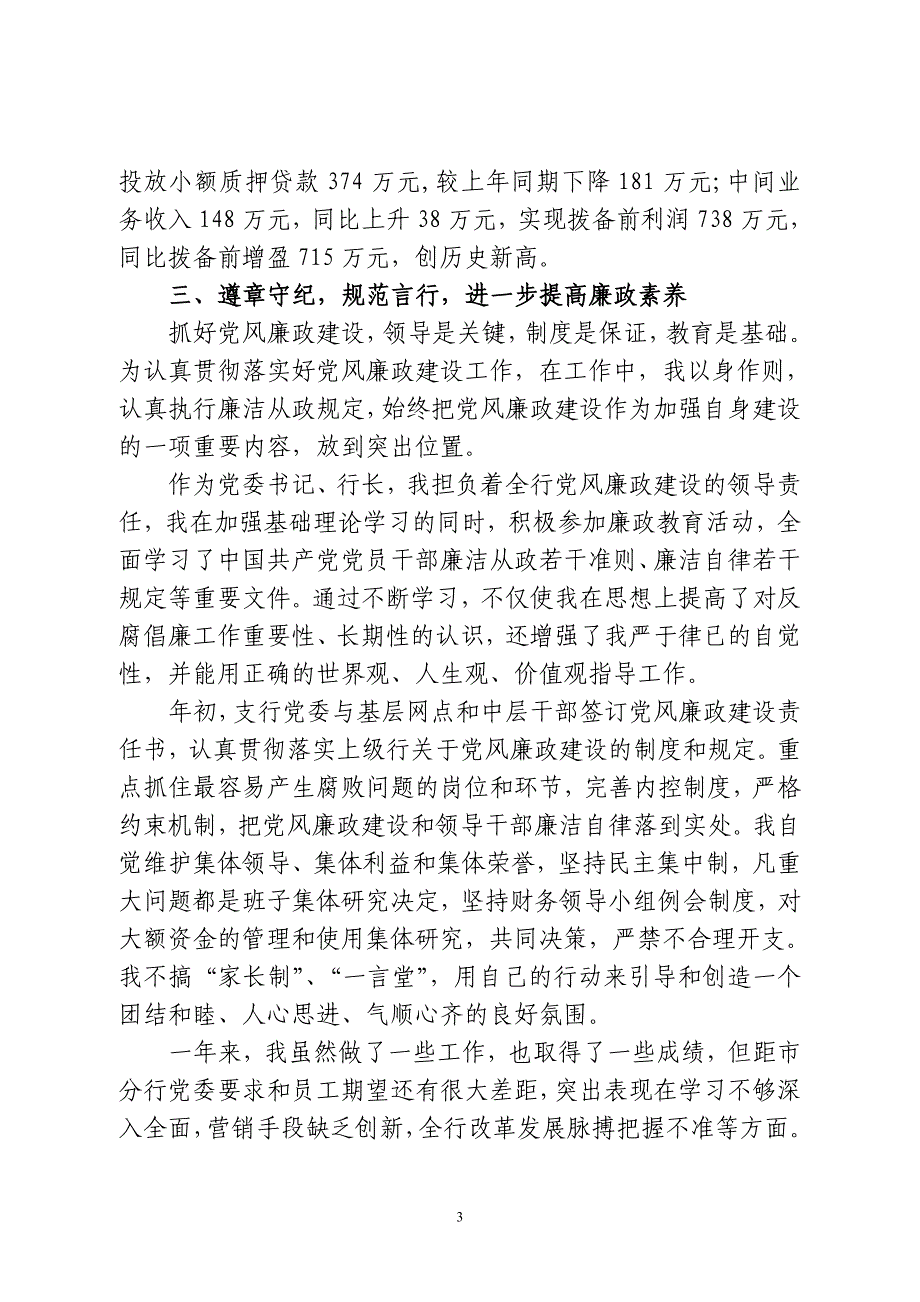 投放小额质押贷款 374 万元,较上年同期下降 181 万元;中间业
务收入 148 万元，同比上升 38 万元，实现拨备前利润 738 万元，
同比拨备前增盈 715 万元，创历史新高。
三、遵章守纪，规范言行，进一步提高廉政素养
抓好党风廉政建设，领导是关键，制度是保证，教育是基础。
为认真贯彻落实好党风廉政建设工作，在工作中，我以身作则，
认真执行廉洁从政规定，始终把党风廉政建设作为加强自身建设
的一项重要内容，放到突出位置。
作为党委书记、行长，我担负着全行党风廉政建设的领导责
任，我在加强基础理论学习的同时，积极参加廉政教育活动，全
面学习了中国共产党党员干部廉洁从政若干准则、廉洁自律若干
规定等重要文件。通过不断学习，不仅使我在思想上提高了对反
腐倡廉工作重要性、长期性的认识，还增强了我严于律已的自觉
性，并能用正确的世界观、人生观、价值观指导工作。
年初，支行党委与基层网点和中层干部签订党风廉政建设责
任书，认真贯彻落实上级行关于党风廉政建设的制度和规定。重
点抓住最容易产生腐败问题的岗位和环节，完善内控制度，严格
约束机制，把党风廉政建设和领导干部廉洁自律落到实处。我自
觉维护集体领导、集体利益和集体荣誉，坚持民主集中制，凡重
大问题都是班子集体研究决定，坚持财务领导小组例会制度，对
大额资金的管理和使用集体研究，共同决策，严禁不合理开支。
我不搞“家长制”、“一言堂”，用自己的行动来引导和创造一个
团结和睦、人心思进、气顺心齐的良好氛围。
一年来，我虽然做了一些工作，也取得了一些成绩，但距市
分行党委要求和员工期望还有很大差距，突出表现在学习不够深
入全面，营销手段缺乏创新，全行改革发展脉搏把握不准等方面。
3